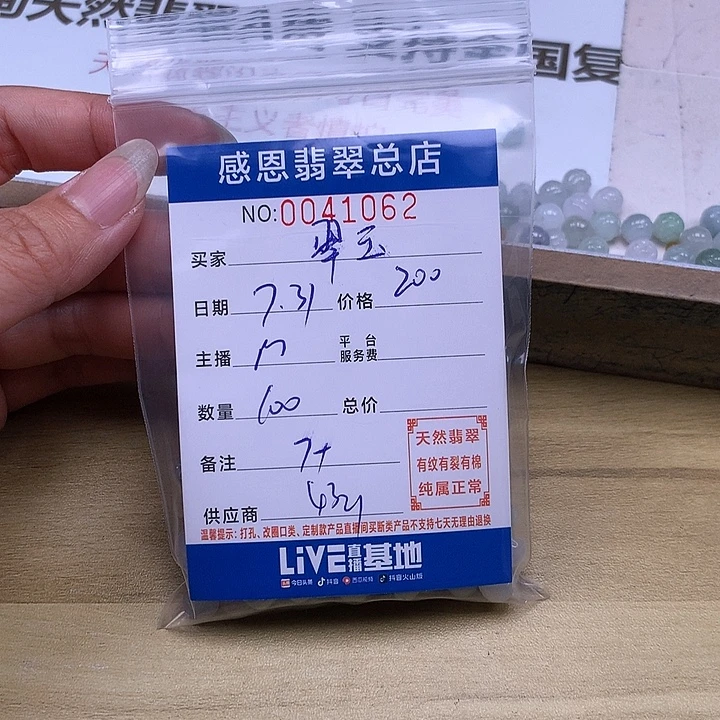 天然翡翠
感恩翡翠总店
NO:0041062
买家 翠玉
日期 7.31 价格 200
主播 M 平台服务费
数量 100 总价
备注 7+
供应商
天然翡翠
有纹有裂有棉
纯属正常
温馨提示:打孔、改圈口类、定制款产品直播间买断类产品不支持七天无理由退换
LiVE直播基地
今日头条 抖音 西瓜视频 抖音火山版